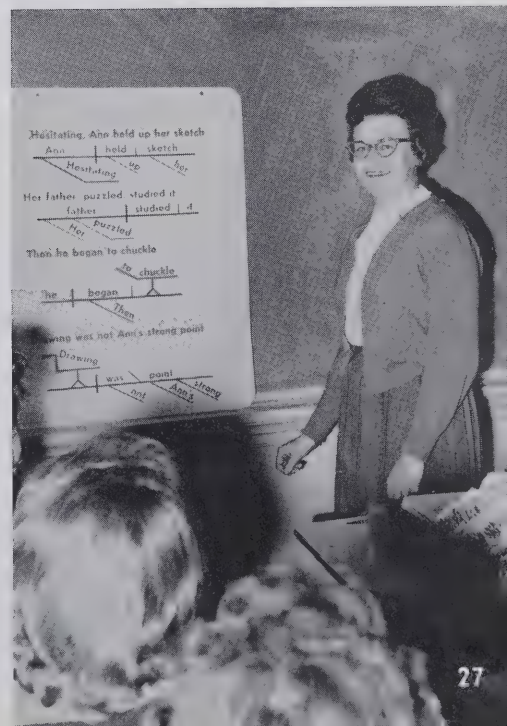 Hesitating, Ann held up her sketch
Ann held sketch
Hesitating up her
Her father puzzled studied it
father studied it
Her puzzled
Then he began to chuckle
to chuckle
he began
Then
Drawing was not Ann's strong point
Drawing
was point
not Ann's strong
27